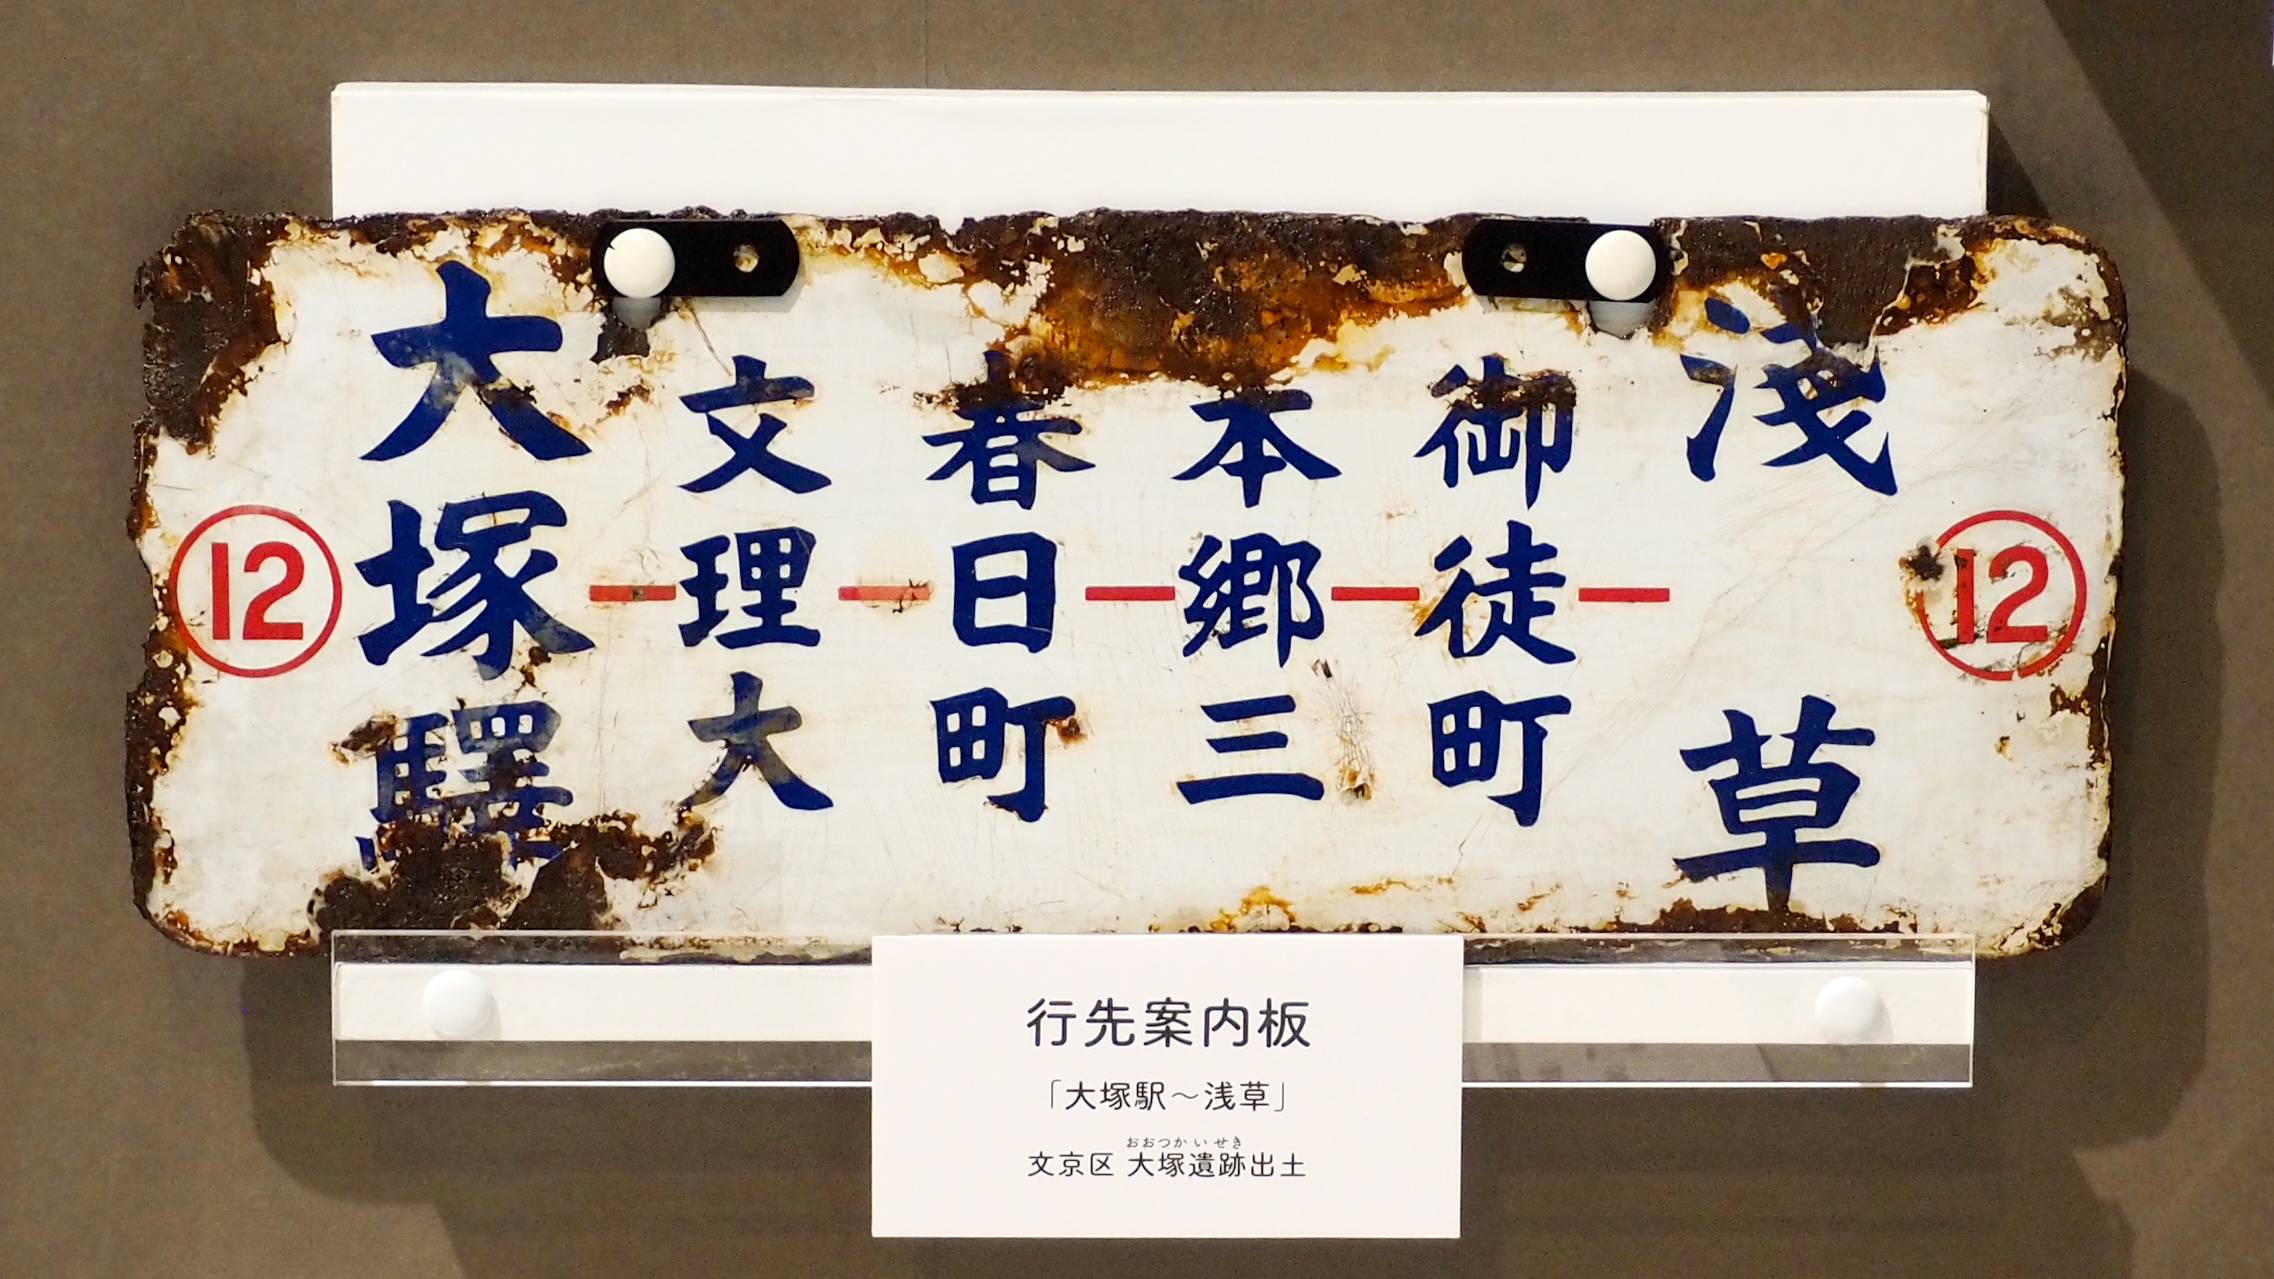 ⑫
大塚驛
文理大
春日町
本郷三
御徒町
淺草
⑫
行先案内板
「大塚駅〜浅草」
おおつかいせき
文京区 大塚遺跡出土